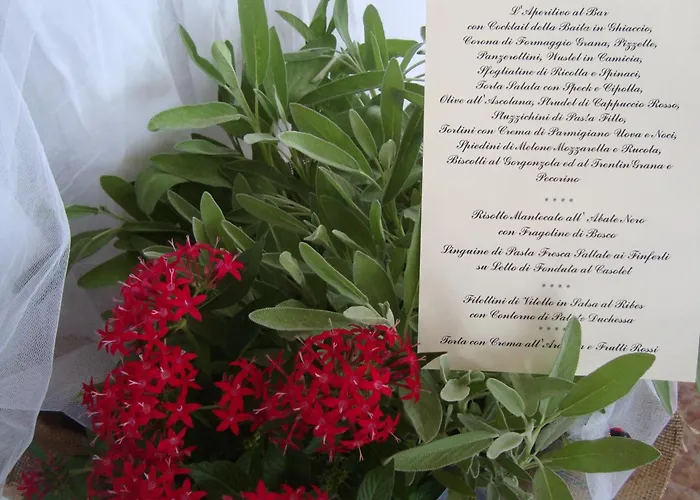 L'Aperitivo al Bar
con Cocktail della Baita in Ghiaccio,
Corona di Formaggio Grana, Pizzelle,
Panzerollini, Wustel in Camicia,
Sfogliatine di Ricolla e Spinaci,
Torta Salata con Speck e Cipolla,
Olive all'Ascolana, Strudel di Cappuccio Rosso,
Stuzzichini di Pasta Tirata,
Tortini con Crema di Parmigiano Uova e Noci,
Spiedini di Melone Mozzarella e Rucola,
Biscotti al Gorgonzola ed al TrentinGrana e
Pecorino
****
Risotto Mantecato all' Abate Nero
con Fragoline di Bosco
Linguine di Pasta Fresca Saltate ai Finferli
su Letto di Fonduta al Casolet
****
Filettini di Vitello in Salsa al Ribes
con Contorno di Duchessa
****
Torta con Crema e Frutti Rossi